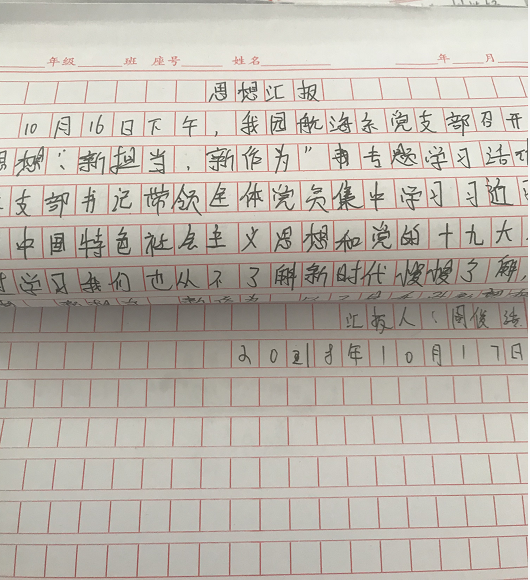 年级 班 座号 姓名 年 月
思想汇报
10月16日下午，我园航海系党支部召开
思想：新担当，新作为"专题学习活
支部书记带领全体党员集中学习习近
中国特色社会主义思想和党的十九大
学习我们也从不了解新时代慢慢了解
汇报人：周俊
2021年10月17日